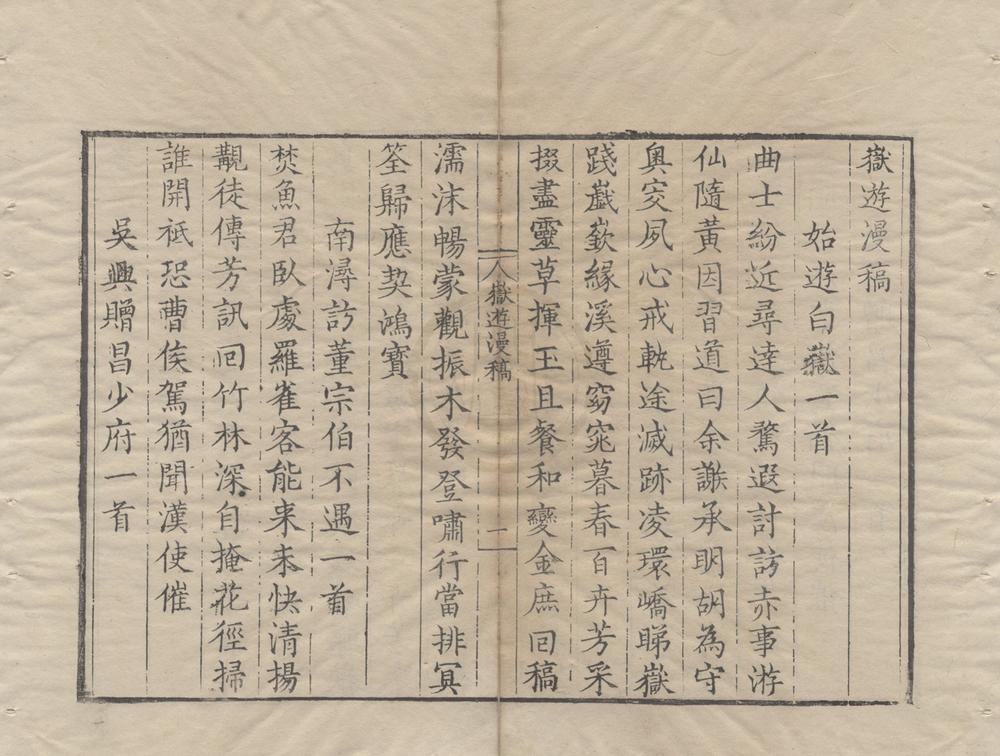 嶽遊漫稿
始遊白嶽一首
曲士紛近尋逹人騖遐討訪赤事游
仙隨黃因習道曰余謝承明胡為守
奥穾夙心戒軌途滅跡凌環嶠睇嶽
踐巀嶔緣溪遵窈窕暮春百卉芳采
掇盡靈草揮玉且餐和變金庶回稿
人嶽遊漫稿
一
濡沫暢蒙觀振木發登嘯行當排冥
筌歸應契鴻寶
南潯訪董宗伯不遇一首
焚魚君臥處羅雀客能来未快清揚
覯徒傳芳訊囘竹林深自掩花徑掃
誰開祗恐曹侯駕猶聞漢使催
吳興贈昌少府一首